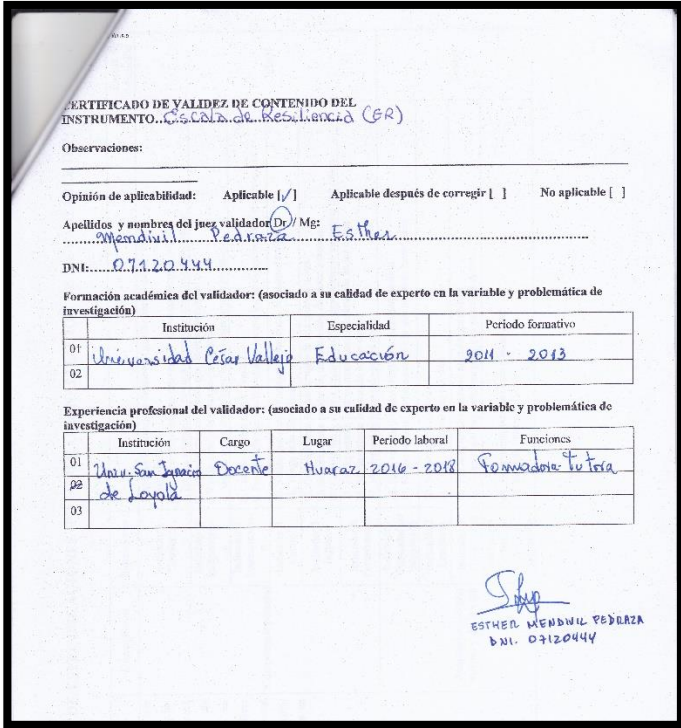 CERTIFICADO DE VALIDEZ DE CONTENIDO DEL
INSTRUMENTO..Escala de Resiliencia (ER)
Observaciones:
Opinión de aplicabilidad: Aplicable [√] Aplicable después de corregir [ ] No aplicable [ ]
Apellidos y nombres del juez validador Dr / Mg:
Mendivil Pedraza Esther
DNI:.......07120444.............
Formación académica del validador: (asociado a su calidad de experto en la variable y problemática de
investigación)
Institución Especialidad Periodo formativo
01 Universidad César Vallejo Educación 2011 - 2013
02
Experiencia profesional del validador: (asociado a su calidad de experto en la variable y problemática de
investigación)
Institución Cargo Lugar Periodo laboral Funciones
01 Univ. San Ignacio Docente Huaraz 2016 - 2018 Formadora Tutora
02 de Loyola
03
ESTHER MENDIVIL PEDRAZA
DNI. 07120444